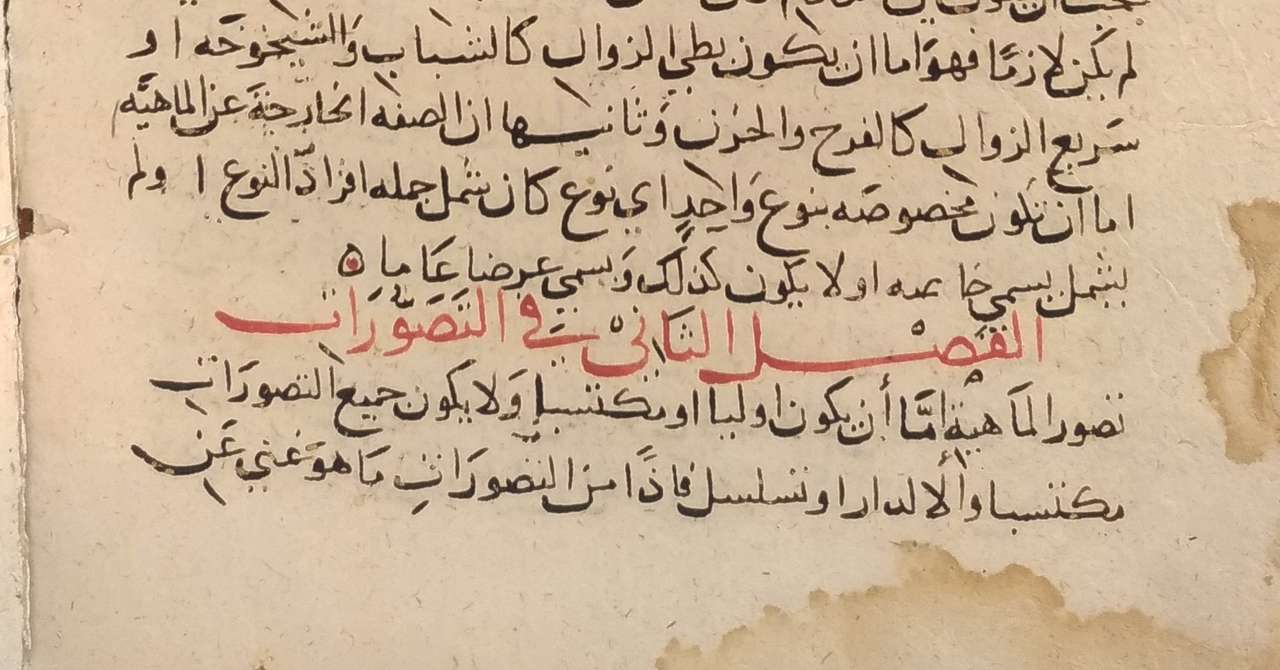 لم يكن لازمًا فهوَ اما ان يكون بطي الزوال كالشباب وَالشيخوخه او
سَريع الزوال كالفرح والحزن وَثانيها ان الصفه الخارجة عن الماهيَّه
اما ان تكون مخصوصَه بنوع وَاحِدٍ اي نوع كان شمل جمله افرادّ النوع ا ولم
يشمل يسمي خاصه او لا يكون كذلك وَيسمي عرضا عَاما ٥
الفصل الثاني في التَصَوُّرَات
تصور الماهية امَّا أن يكون اوليا او مكتسبا وَلا يكون جميع التصورَات
مكتسبا وألا لدار او تسلسل فاذًا من التصّورَاتِ مَا هوَ غني عَن